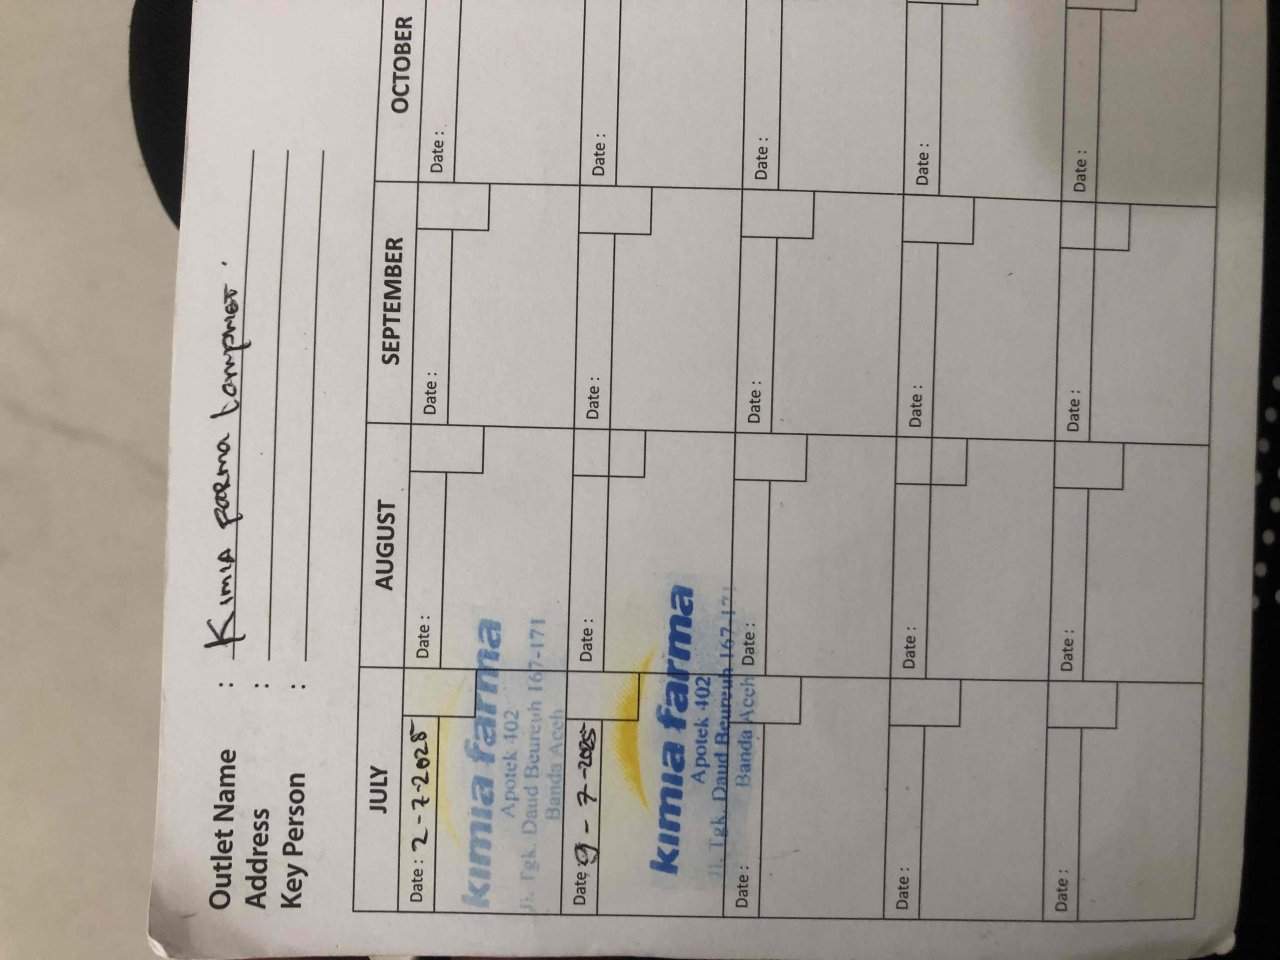 Outlet Name : Kimia Farma Lampriet.
Address :
Key Person :
JULY AUGUST SEPTEMBER OCTOBER
Date : 2-7-2025 Date : Date : Date :
kimia farma
Apotek 402
Jl. Tgk. Daud Beureuh 167-171
Banda Aceh
Date 9-7-2025 Date : Date : Date :
kimia farma
Apotek 402
Jl. Tgk. Daud Beureuh 167-171
Banda Aceh
Date : Date : Date : Date :
Date : Date : Date : Date :
Date : Date : Date : Date :